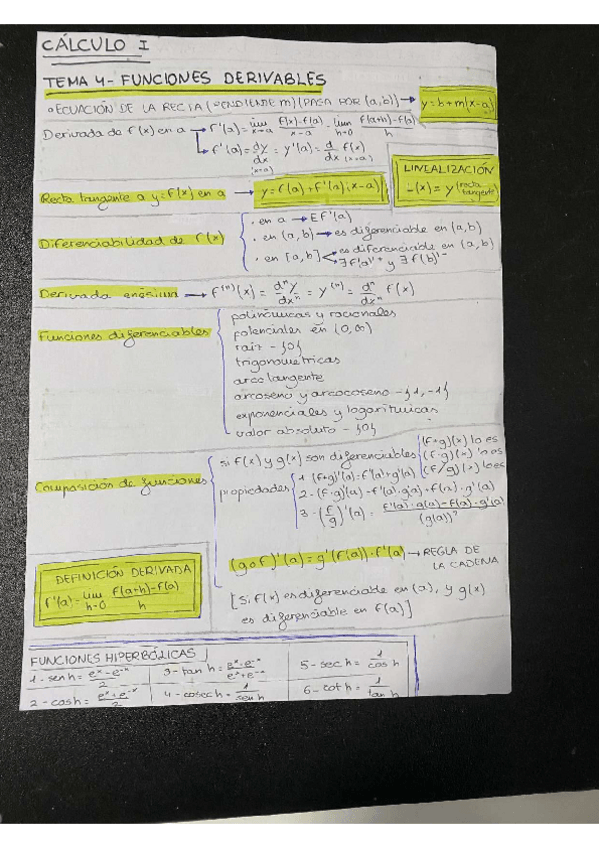 CÁLCULO I
TEMA 4- FUNCIONES DERIVABLES
• ECUACIÓN DE LA RECTA (PENDIENTE m) (PASA POR (a,b)) → y=b+m(x-a)
Derivada de f(x) en a → f'(a)= lim x→a f(x)-f(a)/x-a = lim h→0 f(a+h)-f(a)/h
↳ f'(a) = dy/dx (x=a) = y'(a) = d/dx f(x) (x=a)
LINEALIZACIÓN
L(x) = y (recta tangente)
Recta tangente a y=f(x) en a → y=f(a)+f'(a)·(x-a)
Diferenciabilidad de f(x)
• en a → ∃f'(a)
• en (a,b) → es diferenciable en (a,b)
• en [a,b] es diferenciable en (a,b)
∃f'(a)⁺ y ∃f(b)'⁻
Derivada enésima → f⁽ⁿ⁾(x) = dⁿy/dxⁿ = y⁽ⁿ⁾ = dⁿ/dxⁿ f(x)
Funciones diferenciables
polinómicas y racionales
potenciales en (0,∞)
raíz - {0}
trigonométricas
arco tangente
arcoseno y arcocoseno - {1,-1}
exponenciales y logarítmicas
valor absoluto - {0}
Composición de funciones
si f(x) y g(x) son diferenciables
(f+g)(x) lo es
(f·g)(x) lo es
(f/g)(x) lo es
propiedades
1·(f+g)'(a)=f'(a)+g'(a)
2-(f·g)'(a)=f'(a)·g(a)+f(a)·g'(a)
3-(f/g)'(a)= f'(a)·g(a)-f(a)·g'(a)/(g(a))²
(g∘f)'(a)=g'(f(a))·f'(a) → REGLA DE LA CADENA
[Si f(x) es diferenciable en (a), y g(x)
es diferenciable en f(a)]
DEFINICIÓN DERIVADA
f'(a)= lim h→0 f(a+h)-f(a)/h
FUNCIONES HIPERBÓLICAS
1-sen h= eˣ-e⁻ˣ/2
3-tan h= eˣ-e⁻ˣ/eˣ+e⁻ˣ
5-sec h= 1/cos h
2-cosh= eˣ+e⁻ˣ/2
4-cosech= 1/sen h
6-cot h= 1/tan h